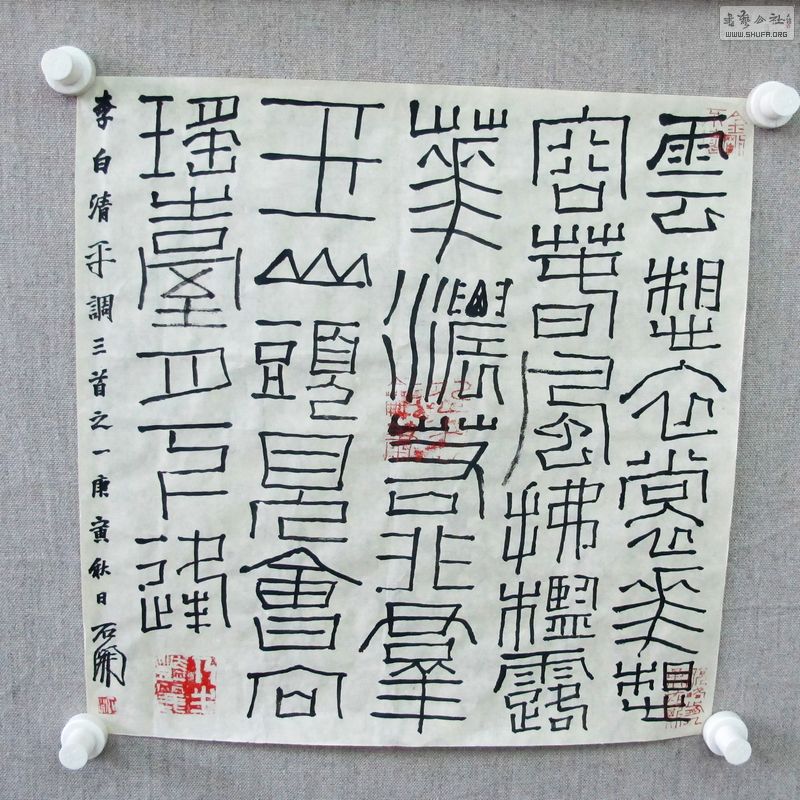 雲想衣裳華想
容春風拂檻露
華濃若非羣
玉山頭見會向
瑤臺月下逢
李白清平調三首之一庚寅秋日石開
書藝公社
WWW.SHUFA.ORG